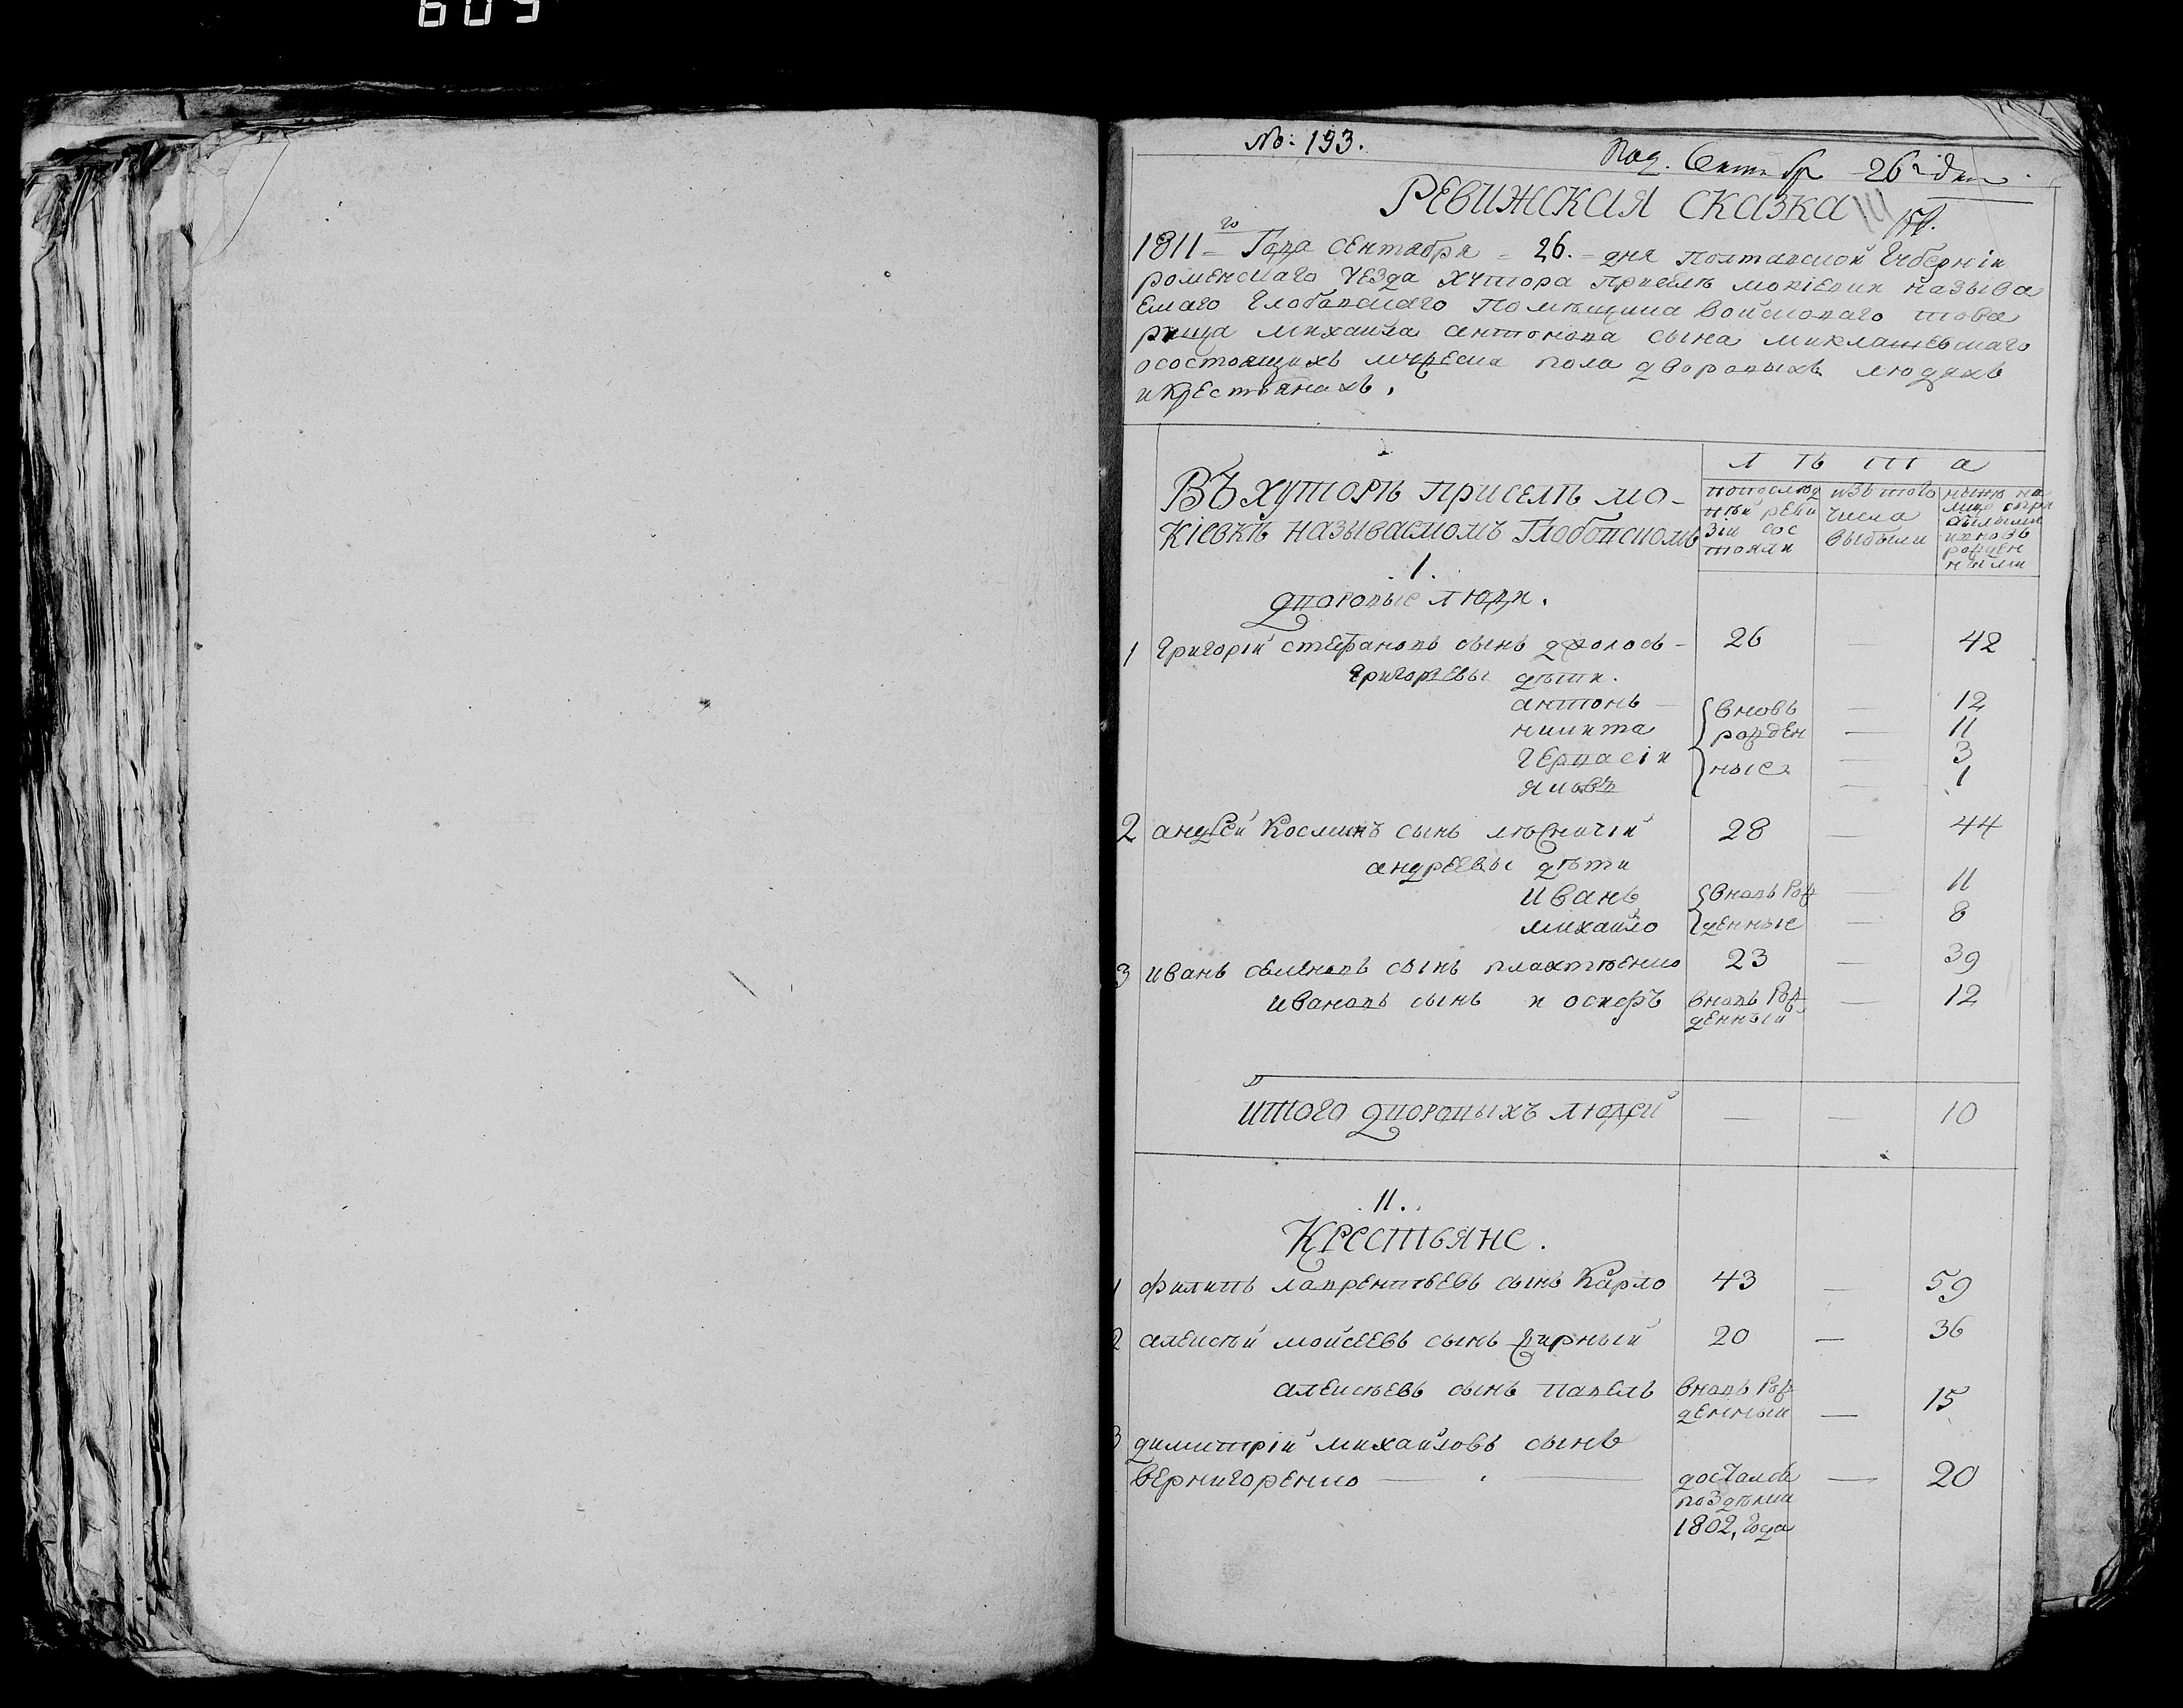 609
№: 193.
Под. Сентябр 26 г дня
РЕВИЖСКАЯ СКАЗКА
1811 го Года сентября 26. дня полтавской Губерніи
роменскаго уезда хутора приселѣ мокіевки называ
емаго глобовскаго помѣщика войсковаго това
рища михаила антонова сына миклашевскаго
осостоящихъ мужеска пола дворовыхъ людяхъ
икрестьянахъ.
ВЪ хуторѣ приселѣ мо-
кіевкѣ называемомъ Глобовскомъ
Л ѣ т а
попослѣд
нѣй реви
зіи сос
тояли
изъ того
числа
выбыли
нынѣ на
лице
рожден
ными
.1.
дворовые люди.
1 григорій стефановъ сынъ 26 — 42
григорьевы дѣти.
антонъ — {вновь — 12
никита рожден — 11
гервасій ные — 3
яковъ — 1
2 андрей Косминъ сынъ лѣсничій 28 — 44
андреевы дѣти
иванъ {вновь Рож — 11
михайло денные — 8
3 иванъ семеновъ сынъ плахтѣенко 23 — 39
ивановъ сынъ иосифъ вновь Рож — 12
денный
итого дворовыхъ людей — — 10
.II.
Крестьяне.
1 филипъ лаврентьевъ сынъ Карло 43 — 59
2 алексѣй мойсеевъ сынъ жирный 20 — 36
алексѣевъ сынъ павелъ вновь Рож
денный — 15
3 димитрій михайловъ сынъ
вернигоренко — достался — 20
поздѣлки
1802, года